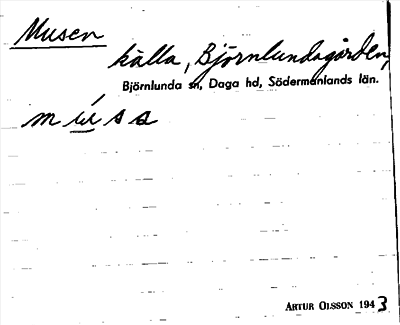 Musen
källa, Björnlundagården,
Björnlunda sn, Daga hd, Södermanlands län.
ARTUR OLSSON 1943